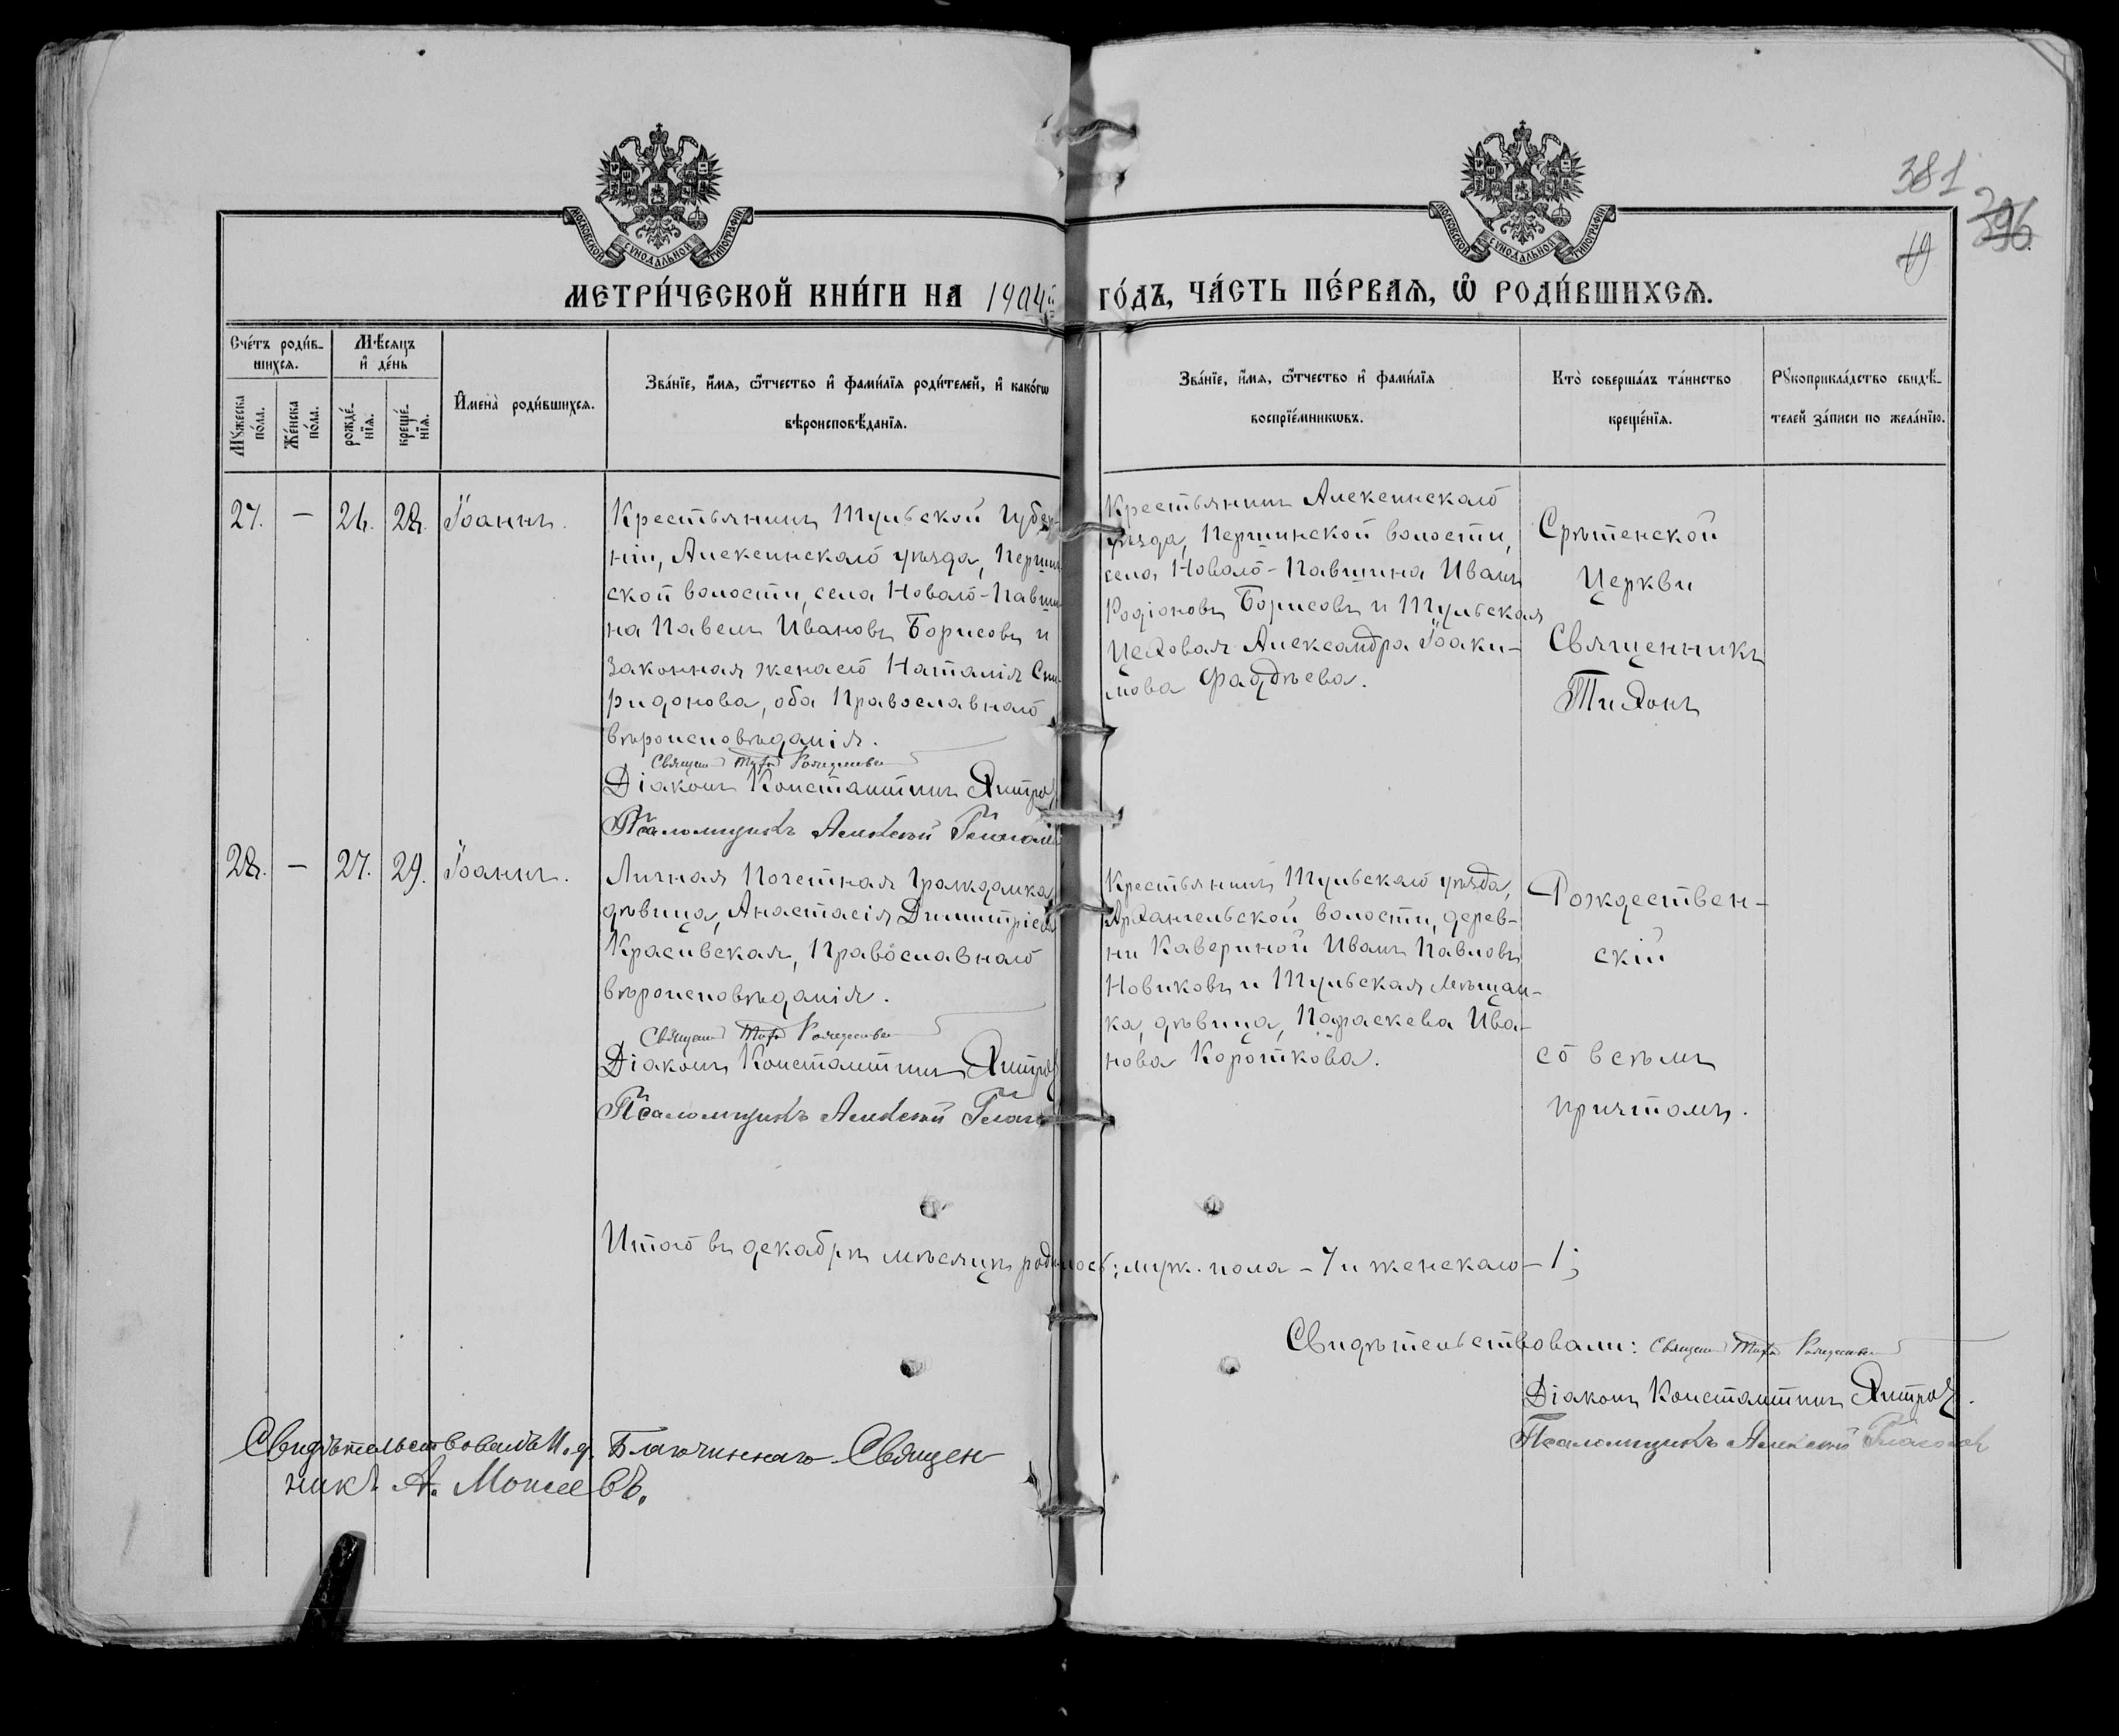 381
396
19
МОСКОВСКОЙ СУНОДАЛЬНОЙ ТИПОГРАФІИ
МОСКОВСКОЙ СУНОДАЛЬНОЙ ТИПОГРАФІИ
МЕТРИ́ЧЕСКОЙ КНИ́ГИ НА 1904й ГО́ДЪ, ЧА́СТЬ ПЕ́РВАѦ, Ѡ҆ РОДИ́ВШИХСѦ.
Сче́тъ роди́в-
шихсѧ.
Мѣ́сѧцъ
и҆ де́нь
Мꙋ́жеска
по́ла.
Же́нска
по́ла.
рожде́-
нїѧ.
креще́-
нїѧ.
И҆мена̀ роди́вшихсѧ.
Зва́нїе, и҆́мѧ, ѻ҆́тчество и҆ фами́лїѧ роди́телей, и҆ како́гѡ
вѣроисповѣ́данїѧ.
Зва́нїе, и҆́мѧ, ѻ҆́тчество и҆ фами́лїѧ
воспрїе́мникѡвъ.
Кто̀ соверша́лъ та́инство
креще́нїѧ.
Рꙋкоприкла́дство свидѣ́-
телей за́писи по жела́нїю.
27. — 26. 28. Іоаннъ.
Крестьянинъ Тульской Губер-
ніи, Алексинскаго уѣзда, Першин
ской волости, села Новаго-Павши
на Павелъ Ивановъ Борисовъ и
законная жена его Наталія Спи
ридонова, оба Православнаго
вѣроисповѣданія.
Священ Тихон Рождествен
Діаконъ Константинъ
Псаломщикъ Алексѣй
Крестьянинъ Алексинскаго
уѣзда, Першинской волости,
села Новаго-Павшина Иванъ
Родіоновъ Борисовъ и Тульская
цеховая Александра Іоаки-
мова Фаддѣева.
Срѣтенской
Церкви
Священникъ
Тихонъ
28. — 27. 29. Іоаннъ.
Личная Почетная Гражданка,
дѣвица, Анастасія Димитріева
Красивская, Православнаго
вѣроисповѣданія.
Священ Тихон Рождествен
Діаконъ Константинъ
Псаломщикъ Алексѣй
Крестьянинъ Тульскаго уѣзда,
Архангельской волости, дерев-
ни Кавериной Иванъ Павловъ
Новиковъ и Тульская мѣщан-
ка, дѣвица, Параскева Ива-
нова Короткова.
Рождествен-
скій
со всѣмъ
причтомъ.
Итого въ декабрѣ мѣсяцѣ родилось: муж. пола – 7 и женскаго – 1;
Свидѣтельствовали: Священ Тихон Рождествен
Діаконъ Константинъ
Псаломщикъ Алексѣй
Свидѣтельствовалъ И. д. Благочиннаго Священ-
никъ А. Моисеевъ.